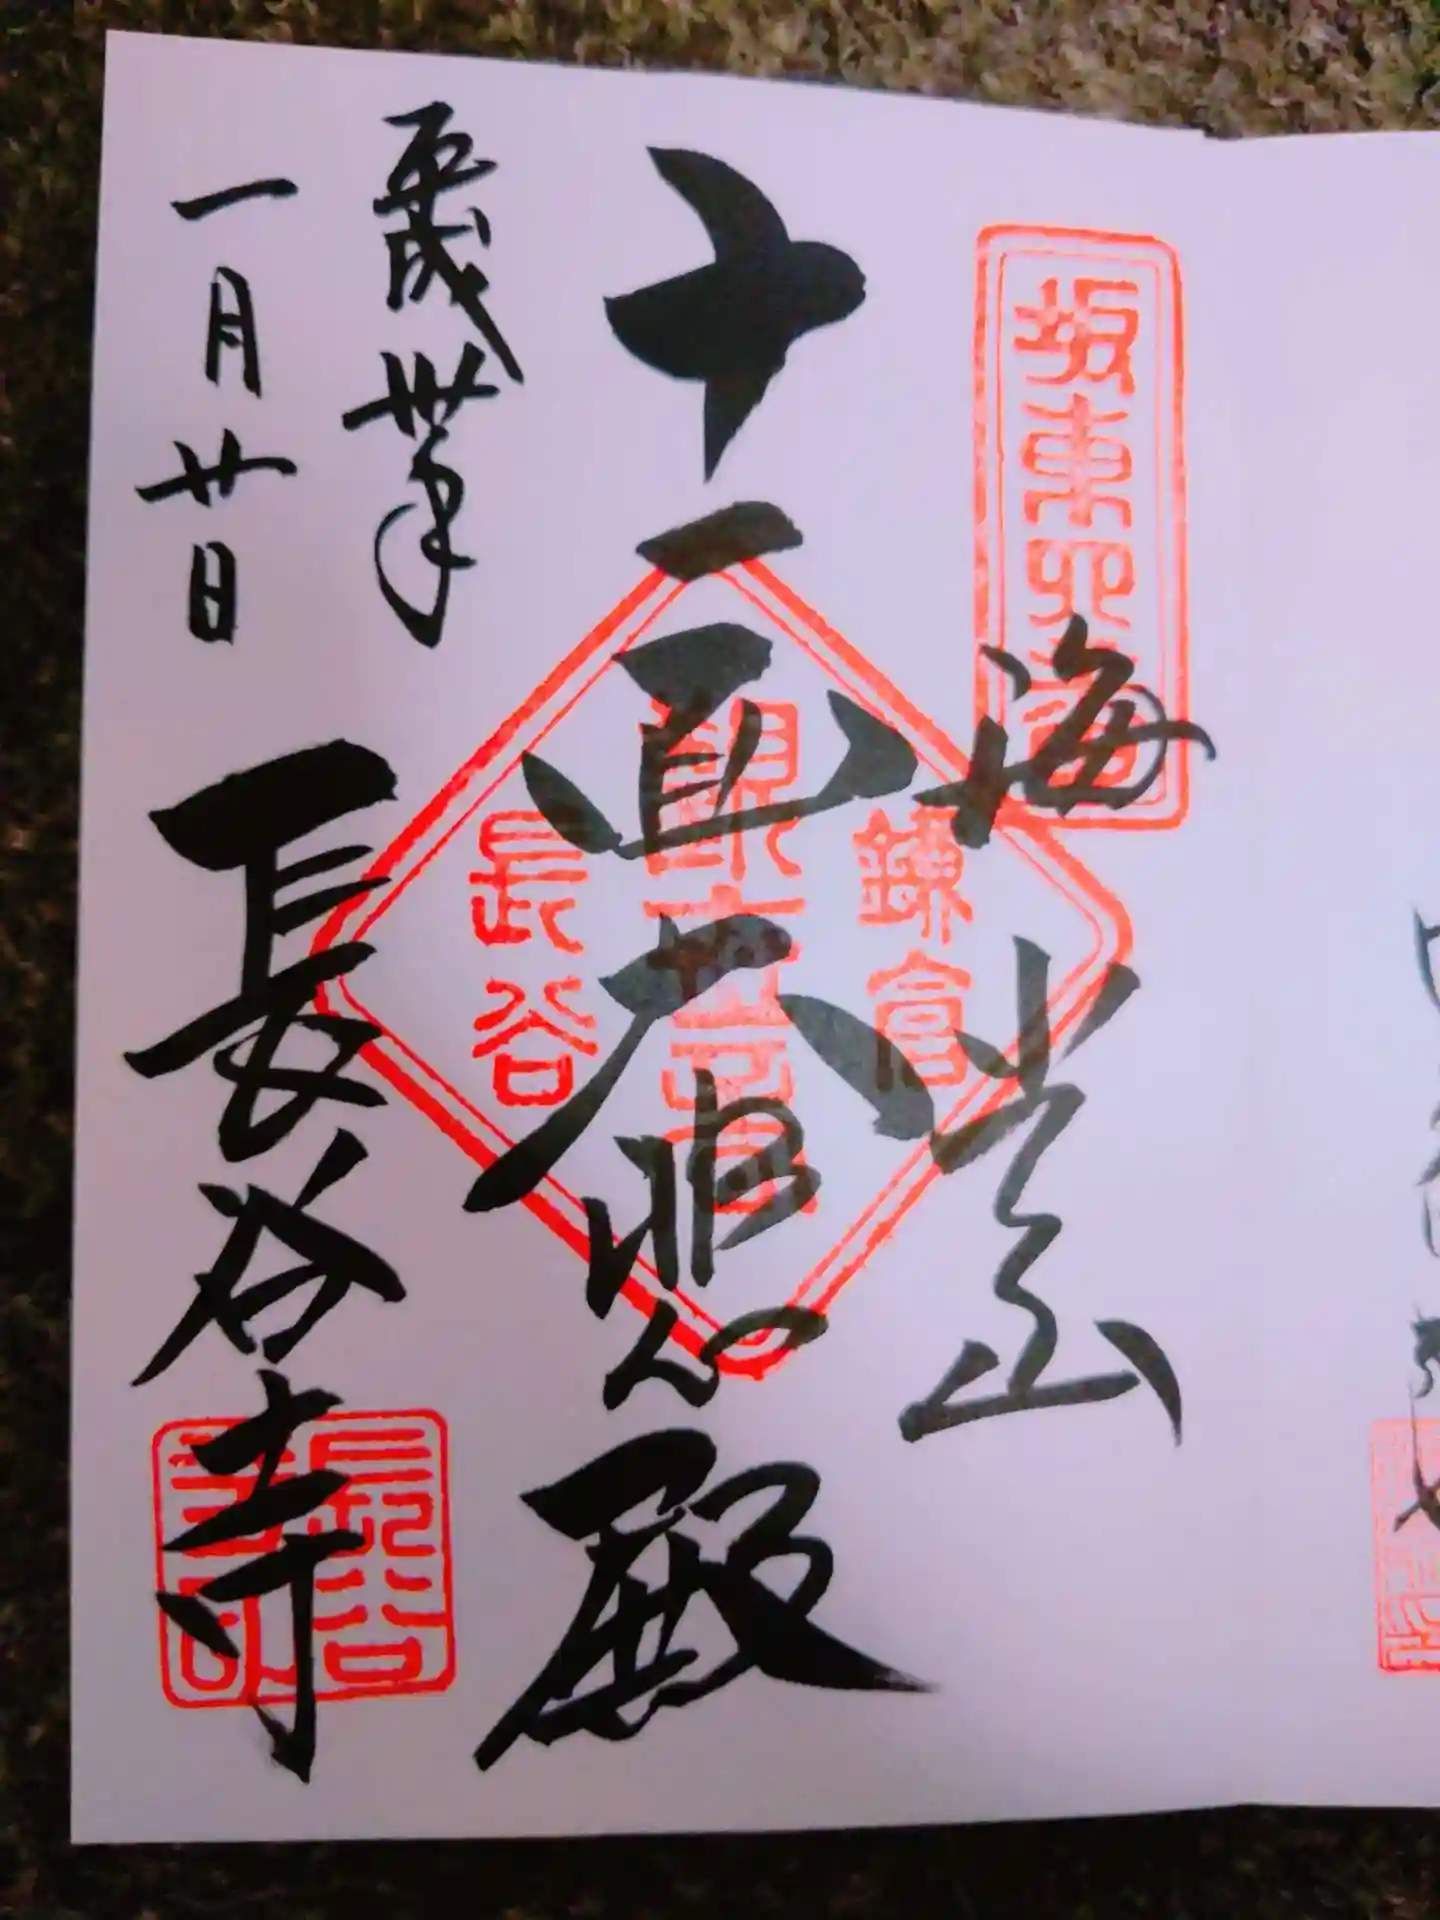 坂東四番
海光山
鎌倉
観世音
長谷
十一面大悲殿
平成卅年
一月廿日
長谷寺
長谷寺印